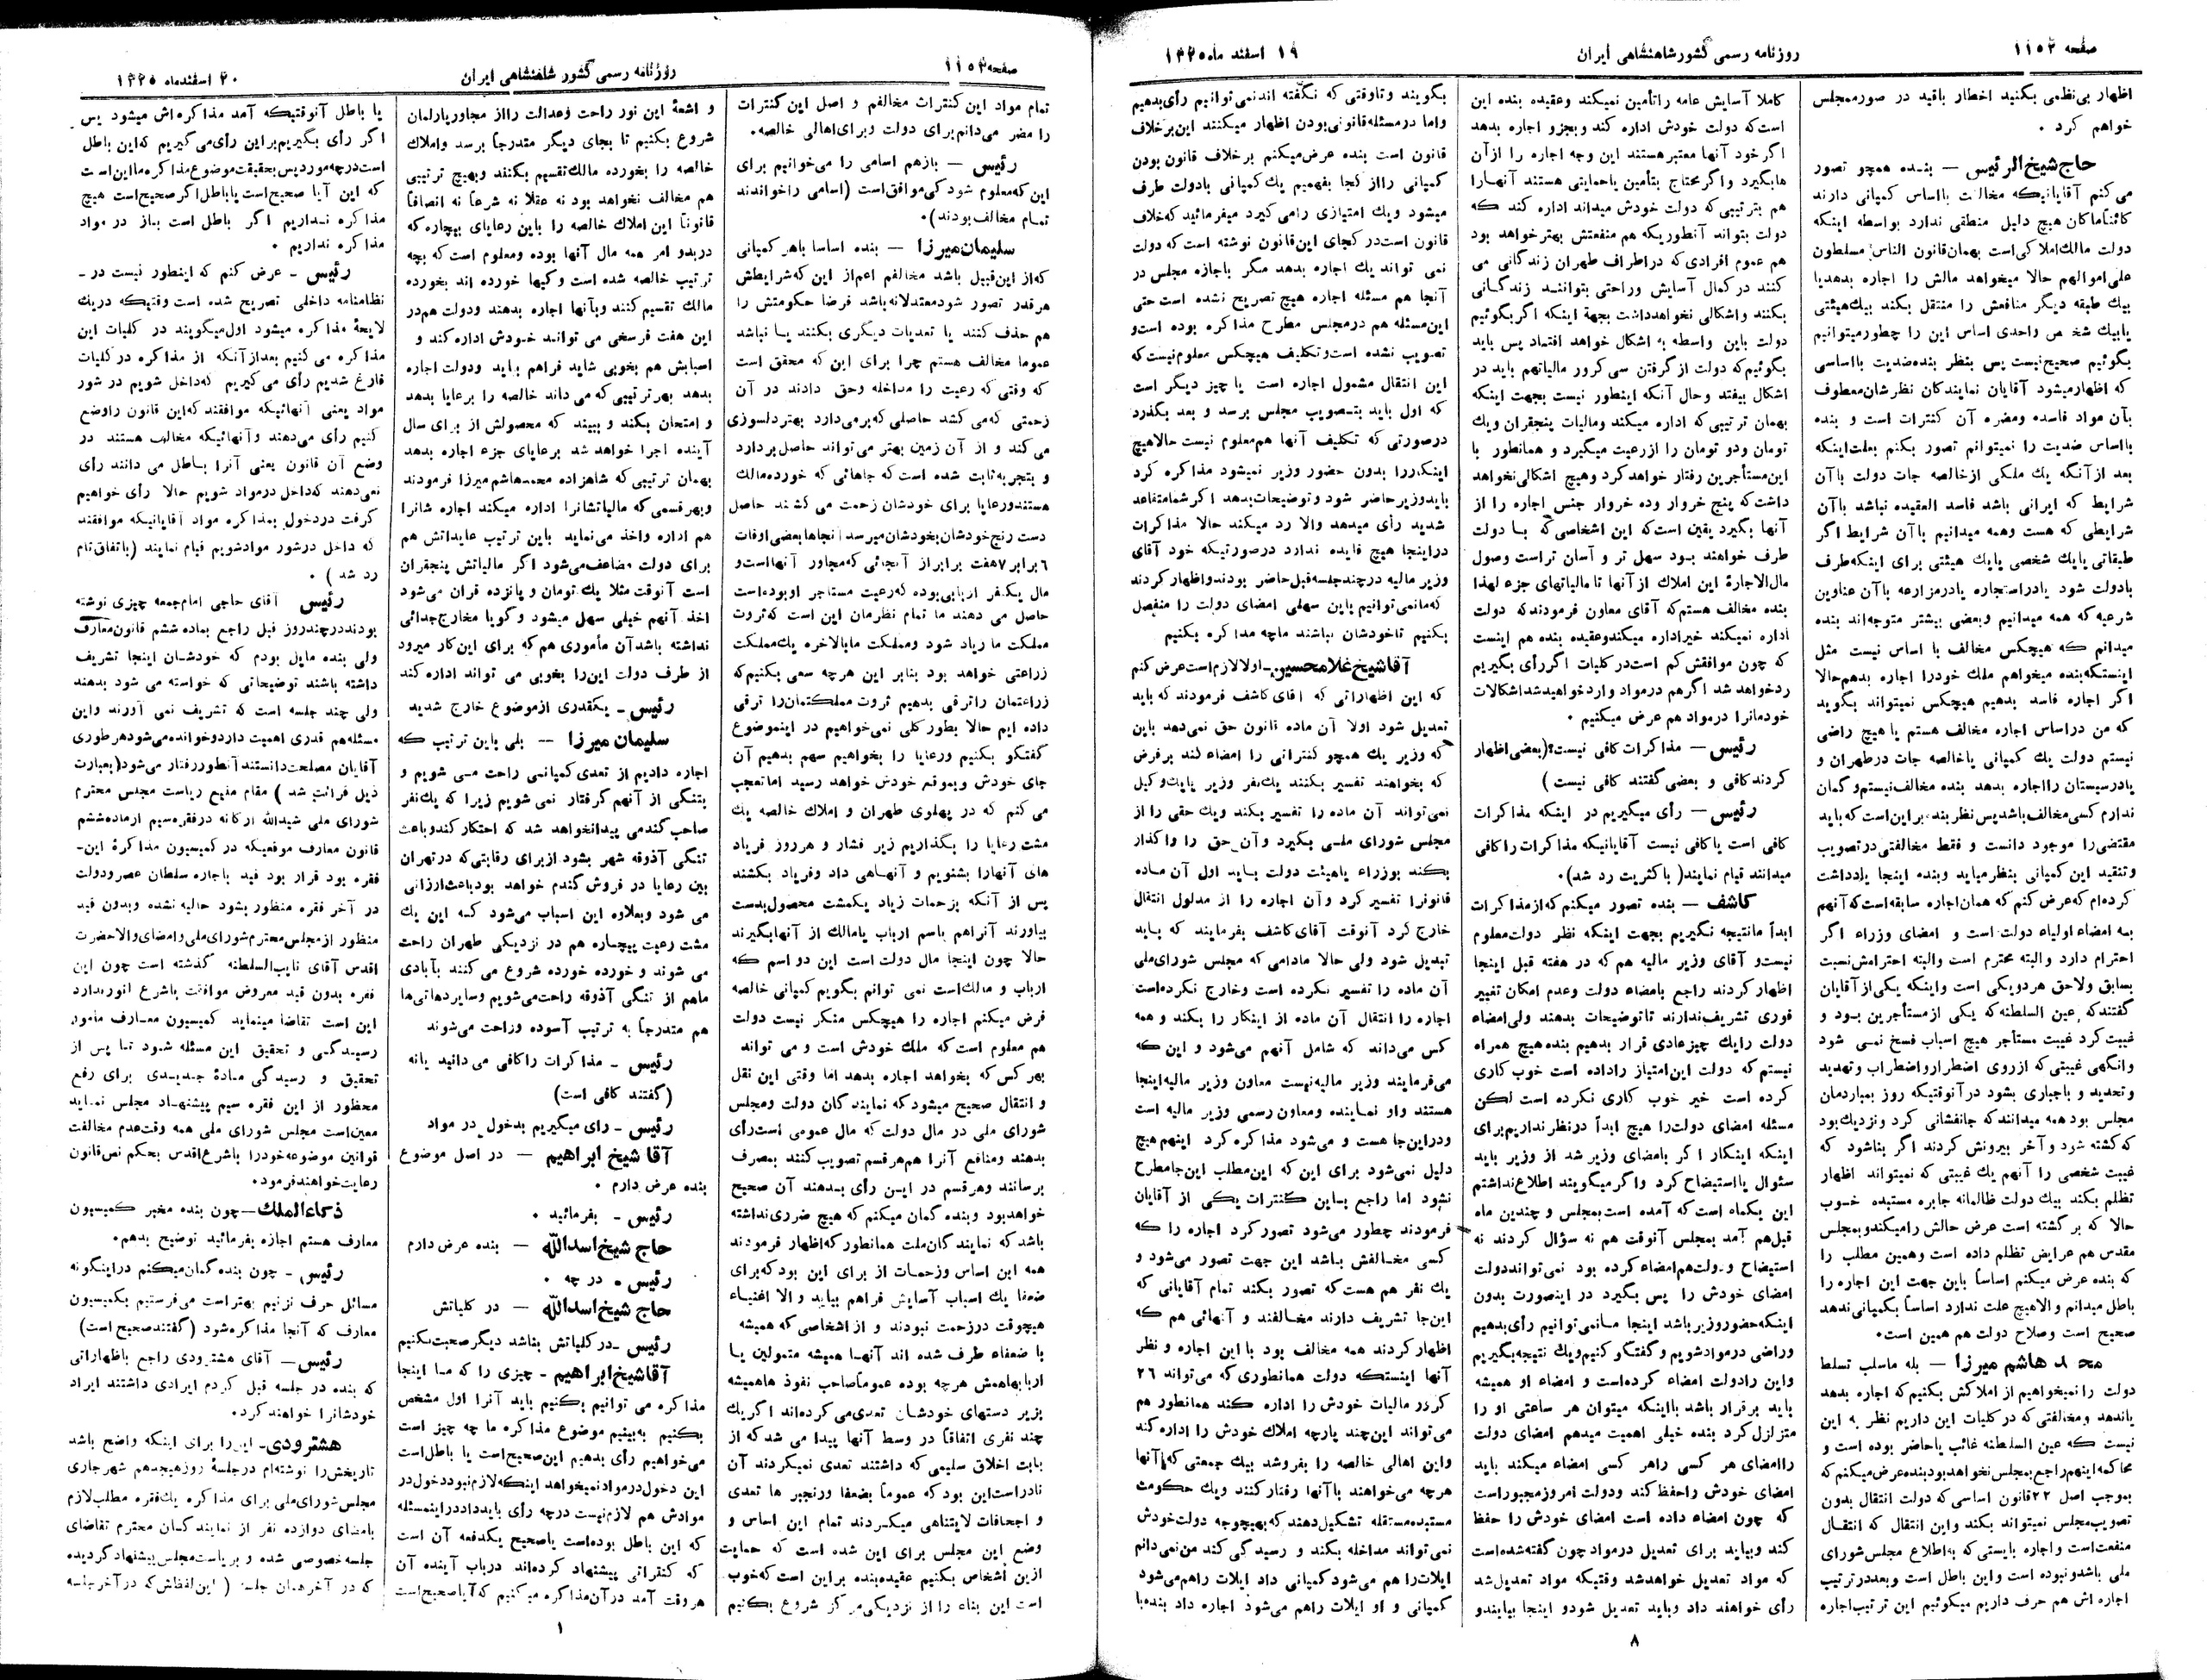 صفحه ۱۱۵۲
روزنامه رسمی کشور شاهنشاهی ایران
۱۹ اسفند ماه ۱۳۲۵
اظهار بی‌نظمی بکنید اخطار باقید در صورمجلس
خواهم کرد .
حاج شیخ الرئیس — بنده همچو تصور
می کنم آقایانیکه مخالفت بااساس کمپانی دارند
کائناماکان هیچ دلیل منطقی ندارد بواسطه اینکه
دولت مالك املاکی است بهمان قانون الناس مسلطون
علی اموالهم حالا میخواهد مالش را اجاره بدهد یا
بیك طبقه دیگر منافعش را منتقل بکند بیك هیئتی
یابیك شخص واحدی اساس این را چطور میتوانیم
بگوئیم صحیح نیست پس بنظر بنده ضدیت بااساسی
که اظهار میشود آقایان نمایندکان نظرشان معطوف
بآن مواد فاسده ومضره آن کنترات است و بنده
بااساس ضدیت را نمیتوانم تصور بکنم بعلت اینکه
بعد از آنکه یك ملکی از خالصه جات دولت با آن
شرایط که ایرانی باشد فاسد العقیده نباشد با آن
شرایطی که هست وهمه میدانیم با آن شرایط اگر
طبقاتی یا یك شخصی یا یك هیئتی برای اینکه طرف
بادولت شود یادراستجاره یادرمزارعه با آن عناوین
شرعیه که همه میدانیم وبعضی بیشتر متوجه‌اند بنده
میدانم که هیچکس مخالف با اساس نیست مثل
اینستکه بنده میخواهم ملك خودرا اجاره بدهم حالا
اگر اجاره فاسد بدهیم هیچکس نمیتواند بگوید
که من در اساس اجاره مخالف هستم یا هیچ راضی
نیستم دولت یك کمپانی یاخالصه جات در طهران و
یادرسیستان رااجاره بدهد بنده مخالف نیستم و گمان
ندارم کسی مخالف باشد پس نظر بنده براین است که باید
مقتضی را موجود دانست و فقط مخالفتی در تصویب
وتنقید این کمپانی بنظر میاید وبنده اینجا یادداشت
کرده‌ام که عرض کنم که همان اجاره سابقه است که آنهم
به امضاء اولیاء دولت است و امضای وزراء اگر
احترام دارد والبته محترم است والبته احترامش نسبت
بسابق ولاحق هردویکی است واینکه یکی از آقایان
گفتند که عین السلطنه که یکی از مستأجرین بود و
غیبت کرد غیبت مستأجر هیچ اسباب فسخ نمی شود
وانگهی غیبتی که از روی اضطرار واضطراب وتهدید
وتحدید و باجباری بشود در آنوقتیکه روز بمباردمان
مجلس بود همه میدانند که جانفشانی کرد ونزدیك بود
که کشته شود و آخر بیرونش کردند اگر بناشود که
غیبت شخصی را آنهم یك غیبتی که نمیتواند اظهار
تظلم بکند بیك دولت ظالمانه جابره مستبده خوب
حالا که بر گشته است عرض حالش رامیکند و بمجلس
مقدس هم عرایض تظلم داده است وهمین مطلب را
که بنده عرض میکنم اساساً باین جهت این اجاره را
باطل میدانم والاهیچ علت ندارد اساساً بکمپانی ندهد
صحیح است وصلاح دولت هم همین است.
محمد هاشم میرزا — بله ماسلب تسلط
دولت را نمیخواهیم از املاکش بکنیم که اجاره بدهد
یاندهد ومخالفتی که در کلیات این داریم نظر به این
نیست که عین السلطنه غائب یاحاضر بوده است و
محاکمه اینهم راجع بمجلس نخواهد بود بنده عرض میکنم که
بموجب اصل ۲۲ قانون اساسی که دولت انتقال بدون
تصویب مجلس نمیتواند بکند واین انتقال که انتقال
منفعت است واجاره بایستی که به اطلاع مجلس شورای
ملی باشد ونبوده است و این باطل است وبعد در ترتیب
اجاره اش هم حرف داریم میگوئیم این ترتیب اجاره
کاملا آسایش عامه راتأمین نمیکند وعقیده بنده این
است که دولت خودش اداره کند وبجزو اجاره بدهد
اگر خود آنها معتبر هستند این وجه اجاره را از آن
هابگیرد واگر محتاج بتأمین یاحمایتی هستند آنهارا
هم بترتیبی که دولت خودش میداند اداره کند که
دولت بتواند آنطوریکه هم منفعتش بهتر خواهد بود
هم عموم افرادی که دراطراف طهران زندگانی می
کنند در کمال آسایش وراحتی بتوانند زندگانی
بکنند واشکالی نخواهد داشت بجهة اینکه اگر بگوئیم
دولت باین واسطه به اشکال خواهد افتاد پس باید
بگوئیم که دولت از گرفتن سی کرور مالیاتهم باید در
اشکال بیفتد وحال آنکه اینطور نیست بجهت اینکه
بهمان ترتیبی که اداره میکند ومالیات پنجقران ویك
تومان ودو تومان را از رعیت میگیرد و همانطور با
این مستأجرین رفتار خواهد کرد وهیچ اشکالی نخواهد
داشت که پنج خروار وده خروار جنس اجاره را از
آنها بگیرد یقین است که این اشخاصی که با دولت
طرف خواهند بود سهل تر و آسان تر است وصول
مال الاجارهٔ این املاك از آنها تا مالیاتهای جزء لهذا
بنده مخالف هستم که آقای معاون فرمودند که دولت
اداره نمیکند خیر اداره میکند وعقیده بنده هم اینست
که چون موافقش کم است در کلیات اگر رأی بگیریم
رد خواهد شد اگر هم در مواد وارد خواهید شد اشکالات
خودمانرا در مواد هم عرض میکنیم .
رئیس — مذاکرات کافی نیست؟ (بعضی اظهار
کردند کافی و بعضی گفتند کافی نیست )
رئیس — رأی میگیریم در اینکه مذاکرات
کافی است یاکافی نیست آقایانیکه مذاکرات را کافی
میدانند قیام نمایند (باکثریت رد شد).
کاشف — بنده تصور میکنم که از مذاکرات
ابداً مانتیجه نگیریم بجهت اینکه نظر دولت معلوم
نیست و آقای وزیر مالیه هم که در هفته قبل اینجا
اظهار کردند راجع بامضاء دولت وعدم امکان تغییر
فوری تشریف ندارند تا توضیحات بدهند ولی امضاء
دولت رایك چیز عادی قرار بدهیم بنده هیچ همراه
نیستم که دولت این امتیاز را داده است خوب کاری
کرده است خیر خوب کاری نکرده است لکن
مسئله امضای دولت را هیچ ابداً در نظر نداریم برای
اینکه اینکار اگر بامضای وزیر شد از وزیر باید
سئوال یااستیضاح کرد واگر میگویند اطلاع نداشتم
این یکماه است که آمده است بمجلس و چندین ماه
قبل هم آمد بمجلس آنوقت هم نه سؤال کردند نه
استیضاح ودولت هم امضاء کرده بود نمی تواند دولت
امضای خودش را پس بگیرد در اینصورت بدون
اینکه حضور وزیر باشد اینجا مانمی توانیم رأی بدهیم
وراضی در مواد شویم و گفتگو کنیم ویك نتیجه بگیریم
واین را دولت امضاء کرده است و امضاء او همیشه
باید برقرار باشد بااینکه میتوان هر ساعتی او را
متزلزل کرد بنده خیلی اهمیت میدهم امضای دولت
را امضای هر کسی راهر کسی امضاء میکند باید
امضای خودش را حفظ کند ودولت امروز مجبور است
که چون امضاء داده است امضای خودش را حفظ
کند وبیاید برای تعدیل در مواد چون گفته شده است
که مواد تعدیل خواهد شد وقتیکه مواد تعدیل شد
رأی خواهند داد وباید تعدیل شود و اینجا بیایند و
بگویند وتاوقتی که نگفته اند نمی توانیم رأی بدهیم
واما در مسئله قانونی بودن اظهار میکنند این بر خلاف
قانون است بنده عرض میکنم بر خلاف قانون بودن
کمپانی را از کجا بفهمیم یك کمپانی بادولت طرف
میشود ویك امتیازی را می گیرد میفرمائید که خلاف
قانون است در کجای این قانون نوشته است که دولت
نمی تواند یك اجاره بدهد مگر باجازه مجلس در
آنجا هم مسئله اجاره هیچ تصریح نشده است حتی
این مسئله هم در مجلس مطرح مذاکره بوده است و
تصویب نشده است و تکلیف هیچکس معلوم نیست که
این انتقال مشمول اجاره است یا چیز دیگر است
که اول باید بتصویب مجلس برسد و بعد بگذرد
در صورتی که تکلیف آنها هم معلوم نیست حالا هیچ
اینکار را بدون حضور وزیر نمیشود مذاکره کرد
باید وزیر حاضر شود و توضیحات بدهد اگر شما متقاعد
شدید رأی میدهد والا رد میکند حالا مذاکرات
در اینجا هیچ فایده ندارد در صورتیکه خود آقای
وزیر مالیه در چند جلسه قبل حاضر بودند و اظهار کردند
که مانمی توانیم باین سهلی امضای دولت را منفصل
بکنیم تاخودشان نباشند ماچه مذاکره بکنیم
آقا شیخ غلامحسین — اولا لازم است عرض کنم
که این اظهاراتی که آقای کاشف فرمودند که باید
تعدیل شود اولا آن ماده قانون حق نمی دهد باین
که وزیر یك همچو کنتراتی را امضاء کند بر فرض
که بخواهند تفسیر بکنند یك نفر وزیر یا یك وکیل
نمی تواند آن ماده را تفسیر بکند ویك حقی را از
مجلس شورای ملی بگیرد و آن حق را واگذار
بکند بوزراء یاهیئت دولت باید اول آن ماده
قانونرا تفسیر کرد و آن اجاره را از مدلول انتقال
خارج کرد آنوقت آقای کاشف بفرمایند که باید
تبدیل شود ولی حالا مادامی که مجلس شورای ملی
آن ماده را تفسیر نکرده است وخارج نکرده است
اجاره را انتقال آن ماده از اینکار را بکند و همه
کس می داند که شامل آنهم می شود و این که
می فرمایند وزیر مالیه نیست معاون وزیر مالیه اینجا
هستند واو نماینده ومعاون رسمی وزیر مالیه است
ودر این جا هست و می شود مذاکره کرد اینهم هیچ
دلیل نمی شود برای این که این مطلب این جا مطرح
نشود اما راجع باین کنترات یکی از آقایان
فرمودند چطور می شود تصور کرد اجاره را که
کسی مخالفش باشد این جهت تصور می شود و
یك نفر هم هست که تصور بکند تمام آقایانی که
این جا تشریف دارند مخالفند و آنهائی هم که
اظهار کردند همه مخالف بود با این اجاره و نظر
آنها اینستکه دولت همانطوری که می تواند ۲۶
کرور مالیات خودش را اداره کند همانطور هم
می تواند این چند پارچه املاك خودش را اداره کند
واین اهالی خالصه را بفروشد بیك جمعی که با آنها
هرچه می خواهند با آنها رفتار کنند ویك حکومت
مستبده مستقله تشکیل دهند که بهیچوجه دولت خودش
نمی تواند مداخله بکند و رسیدگی کند من نمی دانم
ایلات را هم می شود کمپانی داد ایلات را هم می شود
کمپانی و او ایلات راهم می شود اجاره داد بنده با
۸
صفحه ۱۱۵۳
روزنامه رسمی کشور شاهنشاهی ایران
۲۰ اسفند ماه ۱۳۲۵
تمام مواد این کنترات مخالفم و اصل این کنترات
را مضر می دانم برای دولت وبرای اهالی خالصه.
رئیس — بازهم اسامی را می خوانیم برای
این که معلوم شود کی موافق است (اسامی را خواندند
تمام مخالف بودند).
سلیمان میرزا — بنده اساسا باهر کمپانی
که از این قبیل باشد مخالفم اعم از این که شرایطش
هر قدر تصور شود معتدلانه باشد فرضا حکومتش را
هم حذف کنند یا تعدیات دیگری بکنند یا نباشد
عموما مخالف هستم چرا برای این که محقق است
که وقتی که رعیت را مداخله وحق دادند در آن
زحمتی که می کشد حاصلی که بر می دارد بهتر دلسوزی
می کند و از آن زمین بهتر می تواند حاصل بردارد
و بتجربه ثابت شده است که جاهائی که خورده مالك
هستند ورعایا برای خودشان زحمت می کشند حاصل
دست رنج خودشان بخودشان میرسد آنجاها بعضی اوقات
۶ برابر ۷ هفت برابر از آنجائی که مجاور آنها است و
مال یکنفر اربابی بوده که رعیت مستاجر او بوده است
حاصل می دهند ما تمام نظرمان این است که ثروت
مملکت ما زیاد شود ومملکت مابالاخره یك مملکت
زراعتی خواهد بود بنابر این هرچه سعی بکنیم که
زراعتمان را ترقی بدهیم ثروت مملکتمان را ترقی
داده ایم حالا بطور کلی نمی خواهیم در اینموضوع
گفتگو بکنیم ورعایا را بخواهیم سهم بدهیم آن
جای خودش وبموقع خودش خواهد رسید اما تعجب
می کنم که در پهلوی طهران و املاك خالصه یك
مشت رعایا را بگذاریم زیر فشار و هر روز فریاد
های آنهارا بشنویم و آنهاهی داد وفریاد بکشند
پس از آنکه بزحمات زیاد یکمشت محصول بدست
بیاورند آنراهم باسم ارباب یامالك از آنها بگیرند
حالا چون اینجا مال دولت است این دو اسم که
ارباب و مالك است نمی توانم بگویم کمپانی خالصه
فرض میکنم اجاره را هیچکس منکر نیست دولت
هم معلوم است که ملك خودش است و می تواند
بهر کس که بخواهد اجاره بدهد اما وقتی این نقل
و انتقال صحیح میشود که نمایندگان دولت ومجلس
شورای ملی در مال دولت که مال عمومی است رأی
بدهند ومنافع آنرا هم هر قسم تصویب کنند بمصرف
برسانند وهر قسم در این رأی بدهند آن صحیح
خواهد بود وبنده گمان میکنم که هیچ ضرری نداشته
باشد که نمایندگان ملت همانطور که اظهار فرمودند
همه این اساس وزحمات از برای این بود که برای
ضعفا یك اسباب آسایش فراهم بیاید و الا اغنیاء
هیچوقت در زحمت نبودند و از اشخاصی که همیشه
با ضعفاء طرف شده اند آنها همیشه متمولین یا
اربابهاهمش هرچه بوده عموماً صاحب نفوذ ها همیشه
بزیر دستهای خودشان تعدی می کرده‌اند اگر یك
چند نفری اتفاقاً در وسط آنها پیدا می شد که از
بابت اخلاق سلیمی که داشتند تعدی نمیکردند آن
نادر است این بود که عموماً بضعفا ورنجبر ها تعدی
و اجحافات لایتناهی میکردند تمام این اساس و
وضع این مجلس برای این شده است که حمایت
ازین أشخاص بکنیم عقیده بنده براین است که خوب
است این بناء را از نزدیکی مرکز شروع بکنیم
و اشعهٔ این نور راحت وعدالت را از مجاور پارلمان
شروع بکنیم تا بجای دیگر متدرجاً برسد واملاك
خالصه را بخورده مالك تقسیم بکنند وبهیچ ترتیبی
هم مخالف نخواهد بود نه عقلا نه شرعاً نه انصافاً
قانوناً این املاك خالصه را باین رعایای بیچاره که
در بدو امر همه مال آنها بوده ومعلوم است که بچه
ترتیب خالصه شده است و کیها خورده اند بخورده
مالك تقسیم کنند وبآنها اجاره بدهند ودولت هم در
این هفت فرسخی می تواند خودش اداره کند و
اسبابش هم بخوبی شاید فراهم بیاید ودولت اجاره
بدهد بهر ترتیبی که می داند خالصه را برعایا بدهد
و امتحان بکند و ببیند که محصولش از برای سال
آینده اجرا خواهد شد برعایای جزء اجاره بدهد
بهمان ترتیبی که شاهزاده محمدهاشم میرزا فرمودند
وبهر قسمی که مالیاتشانرا اداره میکند اجاره شانرا
هم اداره واخذ می نماید باین ترتیب عایداتش هم
برای دولت مضاعف می شود اگر مالیاتش پنجقران
است آنوقت مثلا یك تومان و پانزده قران می شود
اخذ آنهم خیلی سهل میشود و گویا مخارج جدائی
نداشته باشد آن مأموری هم که برای این کار میرود
از طرف دولت این را بخوبی می تواند اداره کند
رئیس — یکقدری از موضوع خارج شدید
سلیمان میرزا — بلی باین ترتیب که
اجاره دادیم از تعدی کمپانی راحت می شویم و
بتنگی از آنهم گرفتار نمی شویم زیرا که یك نفر
صاحب گندمی پیدانخواهد شد که احتکار کند وباعث
تنگی آذوقه شهر بشود از برای رقابتی که در تهران
بین رعایا در فروش گندم خواهد بود باعث ارزانی
می شود وبعلاوه این اسباب می شود که این یك
مشت رعیت بیچاره هم در نزدیکی طهران راحت
می شوند و خورده خورده شروع می کنند بآبادی
ماهم از تنگی آذوقه راحت می شویم وسایر دهاتی ها
هم متدرجاً به ترتیب آسوده وراحت می شوند
رئیس — مذاکرات را کافی می دانید یا نه
(گفتند کافی است)
رئیس — رای میگیریم بدخول در مواد
آقا شیخ ابراهیم — در اصل موضوع
بنده عرض دارم .
رئیس — بفرمائید .
حاج شیخ اسدالله — بنده عرض دارم
رئیس . در چه .
حاج شیخ اسدالله — در کلیاتش
رئیس — در کلیاتش بناشد دیگر صحبت نکنیم
آقاشیخ ابراهیم — چیزی را که ما اینجا
مذاکره می توانیم بکنیم باید آنرا اول مشخص
بکنیم به بینیم موضوع مذاکره ما چه چیز است
می خواهیم رأی بدهیم این صحیح است یا باطل است
این دخول در مواد نمیخواهد اینکه لازم نبود دخول در
موادش هم لازم نیست در چه رأی باید داد در اینمسئله
که این باطل بوده است یاصحیح یکدفعه آن است
که کنتراتی پیشنهاد کرده‌اند در باب آینده آن
هر وقت آمد در آن مذاکره میکنیم که آیا صحیح است
یا باطل آنوقتیکه آمد مذاکره‌اش میشود پس
اگر رأی بگیریم بر این رأی می گیریم که این باطل
است در چه مورد پس بحقیقت موضوع مذاکره ما این است
که این آیا صحیح است یا باطل اگر صحیح است هیچ
مذاکره نداریم اگر باطل است باز در مواد
مذاکره نداریم .
رئیس — عرض کنم که اینطور نیست در -
نظامنامه داخلی تصریح شده است وقتیکه در یك
لایحهٔ مذاکره میشود اول میگویند در کلیات این
مذاکره می کنیم بعد از آنکه از مذاکره در کلیات
فارغ شدیم رأی می گیریم که داخل شویم در شور
مواد یعنی آنهائیکه موافقند که این قانون را وضع
کنیم رأی می دهند و آنهائیکه مخالف هستند در
وضع آن قانون یعنی آنرا باطل می دانند رأی
نمی دهند که داخل در مواد شویم حالا رأی خواهیم
گرفت در دخول بمذاکره مواد آقایانیکه موافقند
که داخل در شور مواد شویم قیام نمایند (باتفاق تام
رد شد ) .
رئیس آقای حاجی امام جمعه چیزی نوشته
بودند در چند روز قبل راجع بماده ششم قانون معارف
ولی بنده مایل بودم که خودشان اینجا تشریف
داشته باشند توضیحاتی که خواسته می شود بدهند
ولی چند جلسه است که تشریف نمی آورند واین
مسئله هم قدری اهمیت دارد و خوانده می شود هر طوری
آقایان مصلحت دانستند آنطور رفتار می شود (بعبارت
ذیل قرائت شد ) مقام منیع ریاست مجلس محترم
شورای ملی شیدالله ارکانه در فقره سیم از ماده ششم
قانون معارف موقعیکه در کمیسیون مذاکرهٔ این-
فقره بود قرار بود قید باجازه سلطان عصر ودولت
در آخر فقره منظور بشود حالیه نشده وبدون قید
منظور از مجلس محترم شورای ملی و امضای والاحضرت
اقدس آقای نایب السلطنه گذشته است چون این
فقره بدون قید معروض موافقت باشرع انور ندارد
این است تقاضا مینماید کمیسیون معارف مامور
رسیدگی و تحقیق این مسئله شود تا پس از
تحقیق و رسیدگی مادهٔ جدیدی برای رفع
محظور از این فقره سیم پیشنهاد مجلس نماید
معین است مجلس شورای ملی همه وقت عدم مخالفت
قوانین موضوعه خودرا باشرع اقدس بحکم نص قانون
رعایت خواهند فرمود.
ذکاءالملك — چون بنده مخبر کمیسیون
معارف هستم اجازه بفرمائید توضیح بدهم.
رئیس — چون بنده گمان میکنم در اینگونه
مسائل حرف نزنیم بهتر است می فرستیم بکمیسیون
معارف که آنجا مذاکره شود (گفتند صحیح است)
رئیس — آقای هشترودی راجع باظهاراتی
که بنده در جلسه قبل کردم ایرادی داشتند ایراد
خودشانرا خواهند کرد.
هشترودی — این را برای اینکه واضح باشد
تاریخش را نوشته‌ام در جلسهٔ روز هیجدهم شهر جاری
مجلس شورای ملی برای مذاکره یك فقره مطلب لازم
بامضای دوازده نفر از نمایندگان محترم تقاضای
جلسه خصوصی شده و بریاست مجلس پیشنهاد گردیده
که در آخر همان جلسه ( این لفظاش که در آخر جلسه
۱